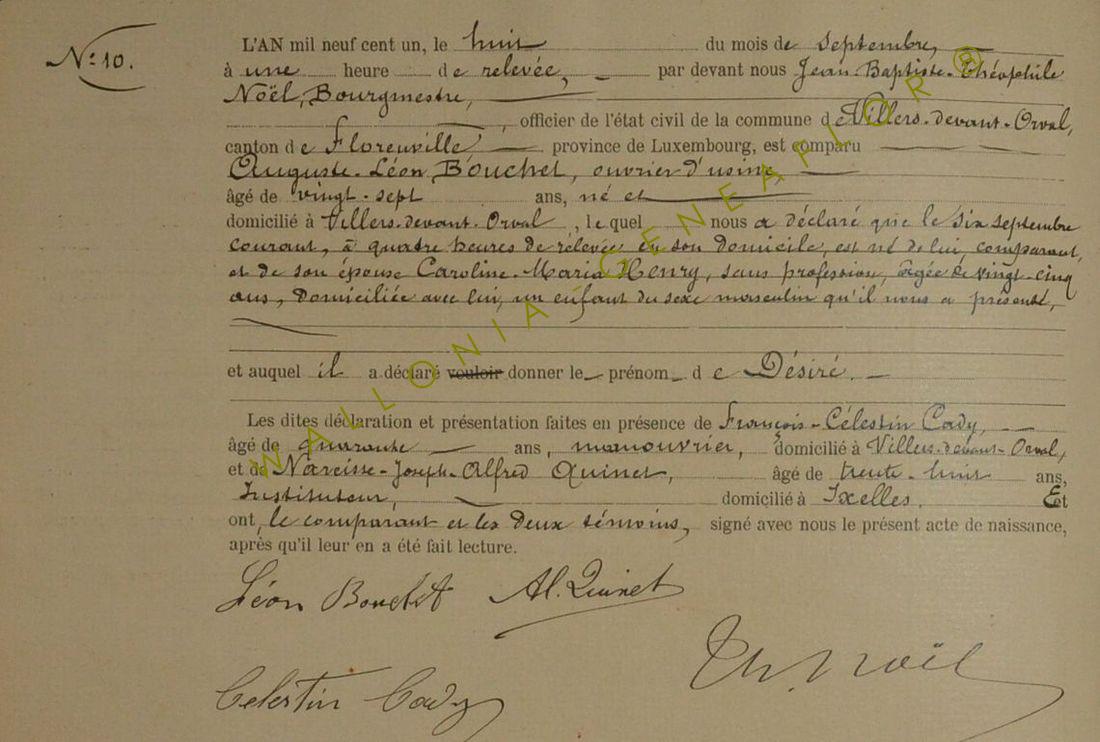 N° 10.
L'AN mil neuf cent un, le huit du mois de septembre,
à une heure de relevée, par devant nous Jean-Baptiste-Théophile
Noël, Bourgmestre,
, officier de l'état civil de la commune de Villers-devant-Orval,
canton de Florenville province de Luxembourg, est comparu
Auguste-Léon Bouchet, ouvrier d'usine
âgé de vingt-sept ans, né et
domicilié à Villers-devant-Orval, lequel nous a déclaré que le six septembre
courant, à quatre heures de relevée en son domicile, est né de lui, comparant,
et de son épouse Caroline-Maria Henry, sans profession, âgée de vingt-cinq
ans, domiciliée avec lui, un enfant du sexe masculin qu'il nous a présenté,
et auquel il a déclaré vouloir donner le prénom de Désiré.
Les dites déclaration et présentation faites en présence de François-Célestin Cady,
âgé de quarante ans, manouvrier, domicilié à Villers-devant-Orval,
et de Narcisse-Joseph-Alfred Quinet, âgé de trente-huit ans,
Instituteur, domicilié à Ixelles. Et
ont, le comparant et les deux témoins, signé avec nous le présent acte de naissance,
après qu'il leur en a été fait lecture.
Léon Bouchet Al. Quinet
Th. Noël
Celestin Cady
WALLONIA GENEAPLOR ®